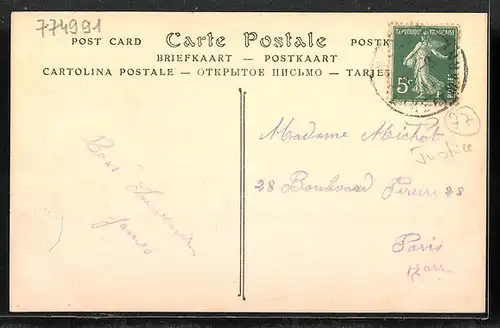 774991
POST CARD Carte Postale POSTK
BRIEFKAART — POSTKAART
CARTOLINA POSTALE — ОТКРЫТОЕ ПИСЬМО — TARJET
REPUBLIQUE FRANÇAISE
5c
POSTES
77
Justice
Bons Souvenirs
James
Madame Michot
28 Boulevard Pereire 28
Paris
17 arr